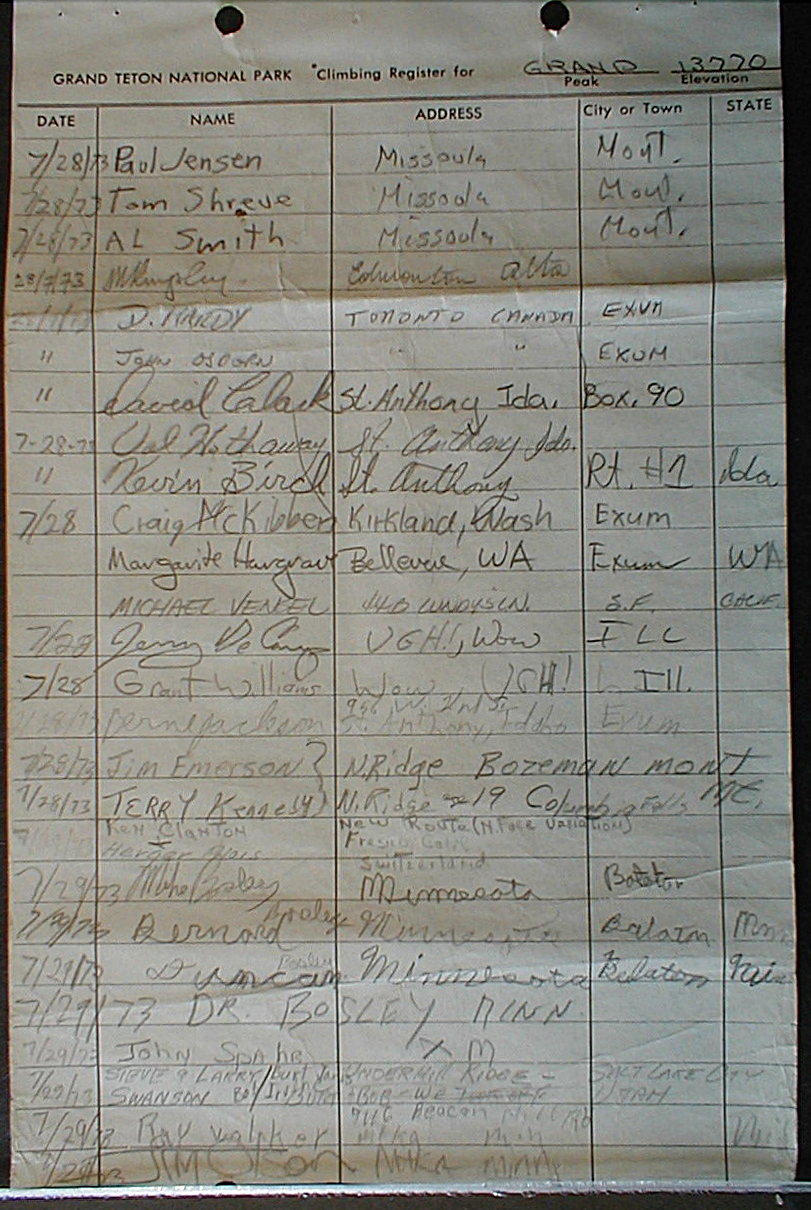 GRAND TETON NATIONAL PARK Climbing Register for GRAND 13770
Peak Elevation
DATE NAME ADDRESS City or Town STATE
7/28/73 Paul Jensen Missoula Mont.
7/28/73 Tom Shreve Missoula Mont.
7/28/73 AL Smith Missoula Mont.
28/7/73 Edmonton Alta
D. HARDY TORONTO CANADA EXUM
" JOHN OSBORN " " EXUM
" David Calack St. Anthony Ida. Box. 90
7-28-73 Val Hathaway St. Anthony Ida.
" Kevin Birch St. Anthony Rt. #1 Ida
7/28 Craig McKibben Kirkland, Wash Exum
Margarite Hargrave Bellevue, WA Exum WA
MICHAEL S.F. CALIF.
7/28 Jerry UGH!, Wow ILL
7/28 Grant Williams Wow, UGH! Ill.
7/28/73 Jackson St. Anthony, Idaho Exum
7/28/73 Jim Emerson } N. Ridge Bozeman MONT
7/28/73 TERRY Kennedy) N. Ridge Columbia Falls MT.
Ken Clanton New Route (N. Face Variation)
Fresno Calif
Switzerland
7/29/73 Mike Bosley Minnesota
7/29/73 Bernard Bosley Minnesota Balaton Minn
7/29/73 Duncan Bosley Minnesota Balaton
7/29/73 DR. BOSLEY MINN
7/29/73 John Spahr
STEVE & LARRY UNDERHILL RIDGE - SALT LAKE CITY
7/29/73 SWANSON UTAH
Beacon Hill Rd
7/29/73 Ray Walker Mtka
7/29/73 Jim Olson Mtka Minn